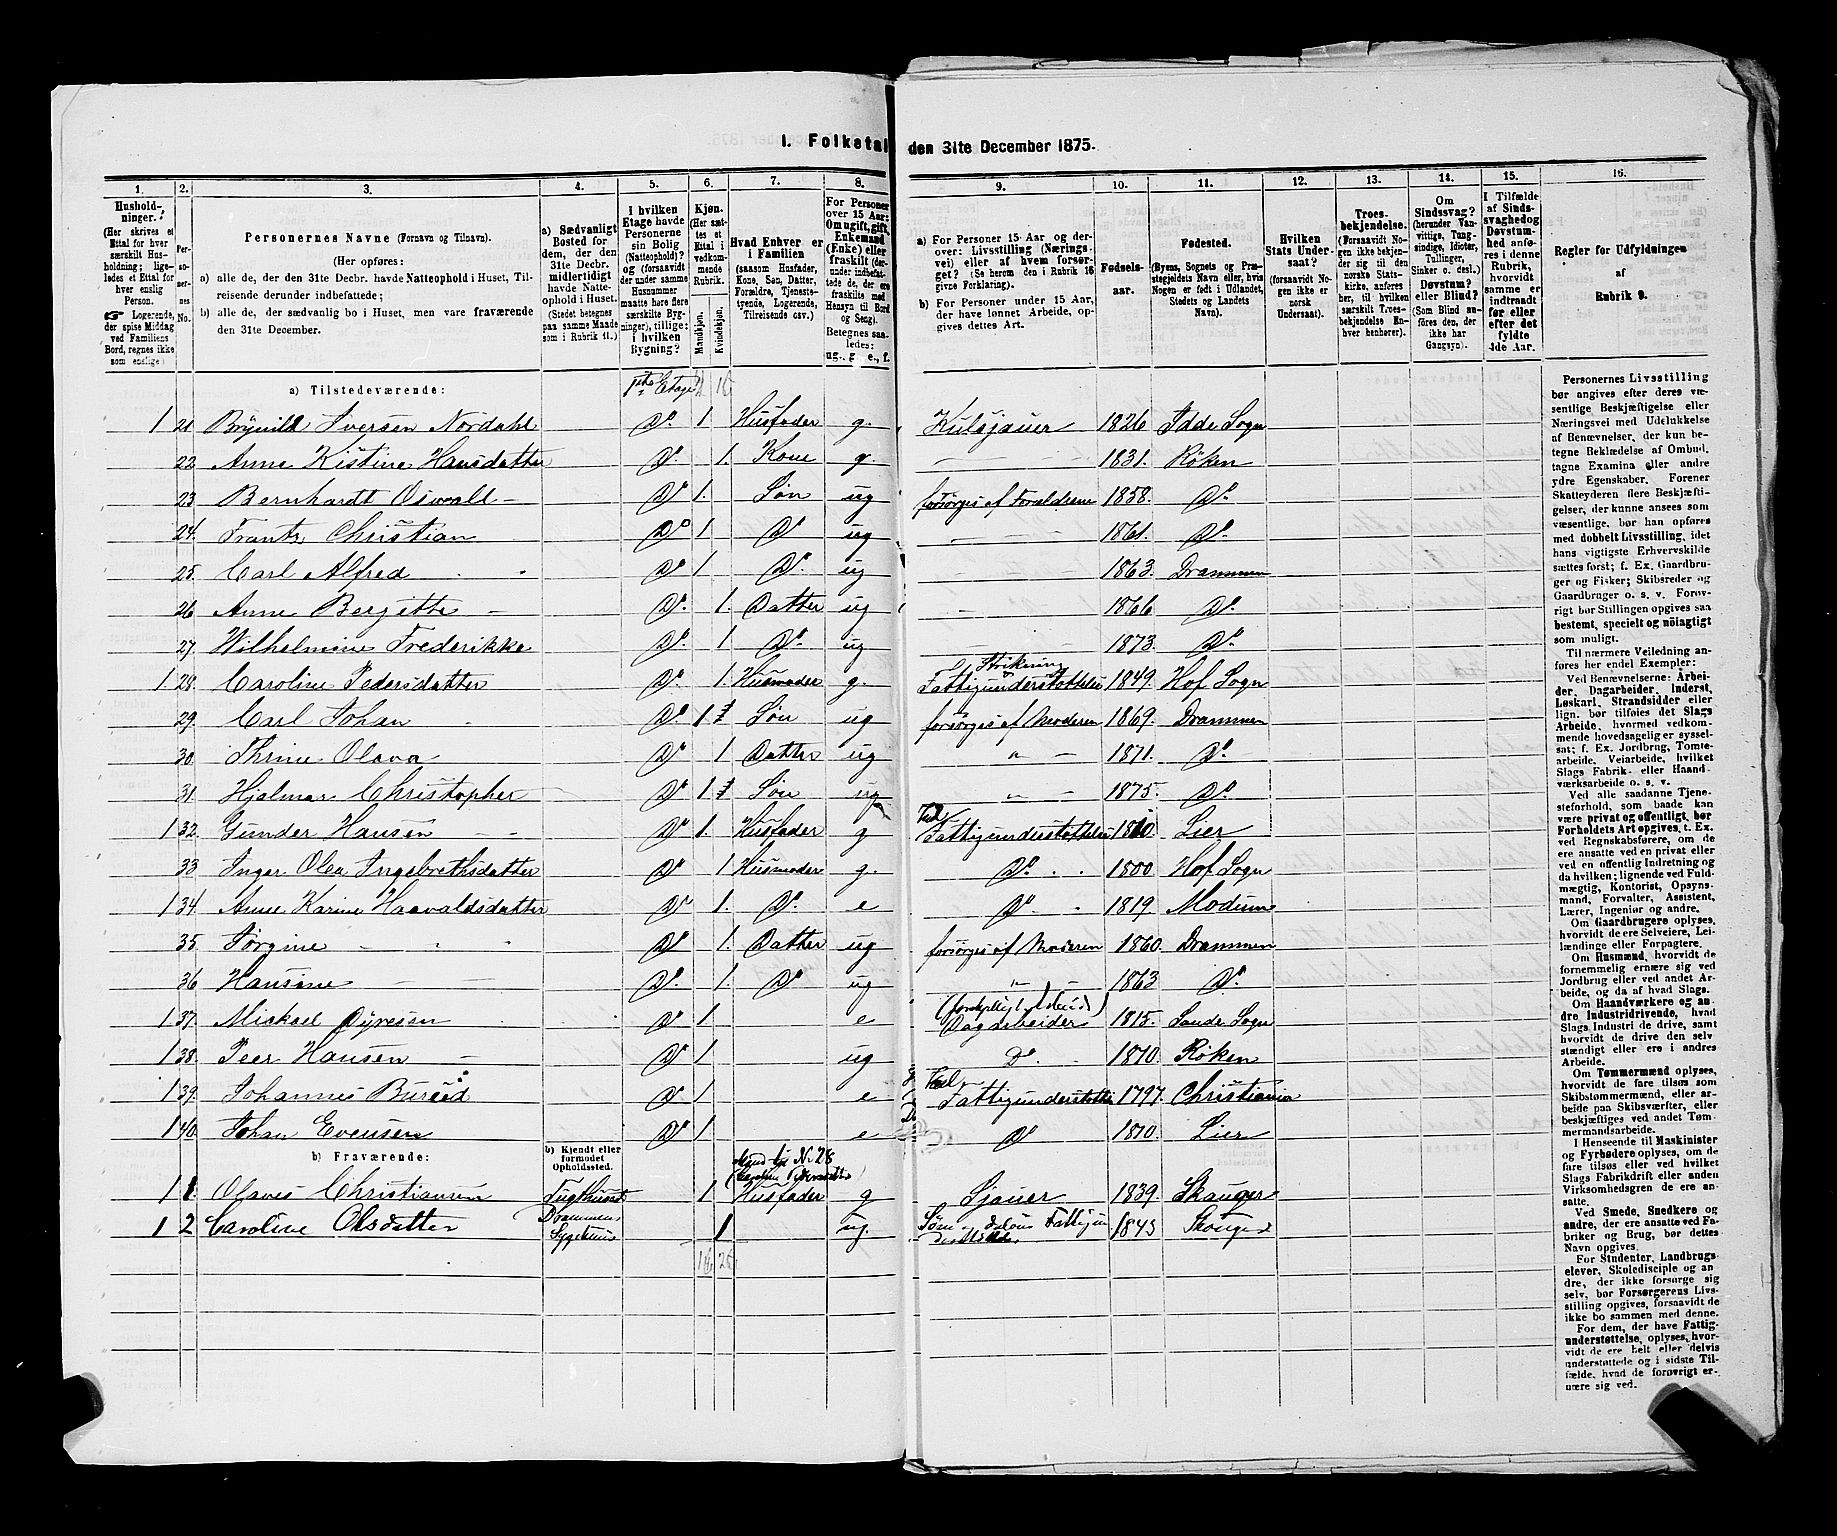 I. Folketal den 31te December 1875.
1. 2. 3. 4. 5. 6. 7. 8. 9. 10. 11. 12. 13. 14. 15. 16.
Husholdninger. (Her skrives et Ettal for hver særskilt Husholdning; ligeledes et Ettal for hver enslig Person. ☞ Logerende, der spise Middag ved Familiens Bord, regnes ikke som enslige).
Personernes No.
Personernes Navne (Fornavn og Tilnavn).
(Her opføres:
a) alle de, der den 31te Decbr. havde Natteophold i Huset, Tilreisende derunder indbefattede;
b) alle de, der sædvanlig bo i Huset, men vare fraværende den 31te December.
a) Sædvanligt Bosted for dem, der den 31te Decbr. midlertidigt havde Natteophold i Huset. (Stedet betegnes paa samme Maade som i Rubrik 11.)
I hvilken Etage havde Personerne sin Bolig (Natteophold)? og (forsaavidt der under samme Husnummer maatte høre flere særskilte Bygninger), tillige: i hvilken Bygning?
Kjøn. (Her sættes et Ettal i vedkommende Rubrik. Mandkjøn. Kvindekjøn.
Hvad Enhver er i Familien (saasom Husfader, Kone, Søn, Datter, Forældre, Tjenestetyende, Logerende, Tilreisende osv.)
For Personer over 15 Aar: Om ugift, gift, Enkemand (Enke) eller fraskilt (derunder indbefattede de, der ere fraskilte med Hensyn til Bord og Seng). Betegnes saaledes: ug., g., e., f.
a) For Personer 15 Aar og derover: Livsstilling (Næringsvei) eller af hvem forsørget? (Se herom den i Rubrik 16 givne Forklaring).
b) For Personer under 15 Aar, der have lønnet Arbeide, opgives dettes Art.
Fødselsaar.
Fødested. (Byens, Sognets og Præstegjeldets Navn eller, hvis Nogen er født i Udlandet, Stedets og Landets Navn).
Hvilken Stats Undersaat? (forsaavidt Nogen ikke er norsk Undersaat).
Troesbekjendelse. (Forsaavidt Nogen ikke bekjender sig til den norske Statskirke, anføres her, til hvilken særskilt Troesbekjendelse Enhver henhører).
Om Sindssvag? (herunder Vanvittige, Tungsindige, Idioter, Tullinger, Sinker o. desl.) Døvstum? eller Blind? (Som Blind anføres den, der ikke har Gangsyn).
I Tilfælde af Sindssvaghed og Døvstumhed anføres i denne Rubrik, hvorvidt samme er indtraadt før eller efter det fyldte 4de Aar.
Regler for Udfyldningen af Rubrik 9.
a) Tilstedeværende: 1ste Etage
1 21 Brynild Iversen Nordahl Do. 1. Husfader g. Kulsjauer 1826 Idde Sogn
22 Anne Kistine Hansdatter Do. 1. Kone g. 1831. Röken
23 Bernhardt Oswald Do 1. Søn ug forsørges af Forældrene 1858. Do.
24. Frants Christian Do 1 Do ug 1861. Do.
25. Carl Alfred Do 1 Do. ug 1863. Drammen
26 Anne Bergitte Do. 1. Datter ug 1866 Do.
27. Wilhelmine Frederikke Do. 1 Do. ug 1873. Do.
1. 28. Caroline Pedersdatter Do. 1. Husmoder g. Strikning Fattigunderstøttelse 1849 Hof Sogn
29. Carl Johan Do. 1 Søn ug forsørges af Moderen 1869. Drammen
30. Thrine Olava Do 1 Datter ug " 1871. Do.
31. Hjalmar Christopher Do 1 Søn ug " 1875. Do.
1 32. Gunder Hansen Do 1. Husfader g Fattigunderstøttelse 1810. Lier
33 Inger Olea Ingebrethsdatter Do 1 Husmoder g. Do. 1800 Hof Sogn
1 34. Anne Karine Haavaldsdatter Do 1. Do. e Do 1819. Modum
35. Jørgine Do 1. Datter ug forsørges af Moderen 1860. Drammen
36 Hansine Do. 1. Do ug " 1863 Do
1 37. Mickael Dyresen Do 1 e (forskjelligt Arbeid) Dagarbeider 1815. Sande Sogn
1 38. Peer Hansen Do 1 ug Do. 1810. Röken
1 39. Johannes Burud Do 1 e Fattigunderstøtte 1797. Christiania
1 40. Johan Evensen Do 1 e Do 1810. Lier
b) Fraværende: b) Kjendt eller formodet Opholdssted.
1 1. Olaves Christiansen Tugthuset 1 Mand til No 28 Husfader g Sjauer 1839. Skauger
1 2 Caroline Olsdatter Drammens Sygehus 1 ug. 1843 Skouger
16 25
Personernes Livsstilling bør angives efter deres væsentlige Beskjæftigelse eller Næringsvei med Udelukkelse af Benævnelser, der kun betegne Beklædelse af Ombud, tagne Examina eller andre ydre Egenskaber. Forener Skatteyderen flere Beskjæftigelser, der kunne ansees som væsentlige, bør han opføres med dobbelt Livsstilling, idet hans vigtigste Erhvervskilde sættes først; f. Ex. Gaardbruger og Fisker; Skibsreder og Gaardbruger o. s. v. Forøvrigt bør Stillingen opgives saa bestemt, specielt og nöiagtigt som muligt.
Til nærmere Veiledning anføres her endel Exempler:
Ved Benævnelserne: Arbeider, Dagarbeider, Inderst, Løskarl, Strandsidder eller lign. bør tilføies det Slags Arbeide, hvormed vedkommende hovedsagelig er sysselsat; f. Ex. Jordbrug, Tomtearbeide, Veiarbeide, hvilket Slags Fabrik- eller Haandværksarbeide o. s. v.
Ved alle saadanne Tjenesteforhold, som baade kan være privat og offentligt, bør Forholdets Art opgives, t. Ex. ved Regnskabsførere, om de ere ansatte ved en privat eller ved en offentlig Indretning og da hvilken; lignende ved Fuldmægtig, Kontorist, Opsynsmand, Forvalter, Assistent, Lærer, Ingeniør og andre.
Om Gaardbrugere oplyses, hvorvidt de ere Selveiere, Leilændinge eller Forpagtere.
Om Husmænd, hvorvidt de fornemmelig ernære sig ved Jordbrug eller ved andet Arbeide, og da af hvad Slags.
Om Haandværkere og andre Industridrivende, hvad Slags Industri de drive, samt hvorvidt de drive den selvstændigt eller ere i andres Arbeide.
Om Tømmermænd oplyses, hvorvidt de fare tilsøs som Skibstømmermænd, eller arbeide paa Skibsværfter, eller beskjæftiges ved andet Tømmermandsarbeide.
I Henseende til Maskinister og Fyrbødere oplyses, om de fare tilsøs eller ved hvilket Slags Fabrikdrift eller anden Virksomhedsgren de ere ansatte.
Ved Smede, Snedkere og andre, der ere ansatte ved Fabriker og Brug, bør dettes Navn opgives.
For Studenter, Landbrugselever, Skoledisciple og andre, der ikke forsørge sig selv, bør Forsørgerens Livsstilling opgives, forsaavidt de ikke bo sammen med denne.
For dem, der have Fattigunderstøttelse, oplyses, hvorvidt de ere helt eller delvis understøttede og i sidste Tilfælde, hvad de forøvrigt ernære sig ved.